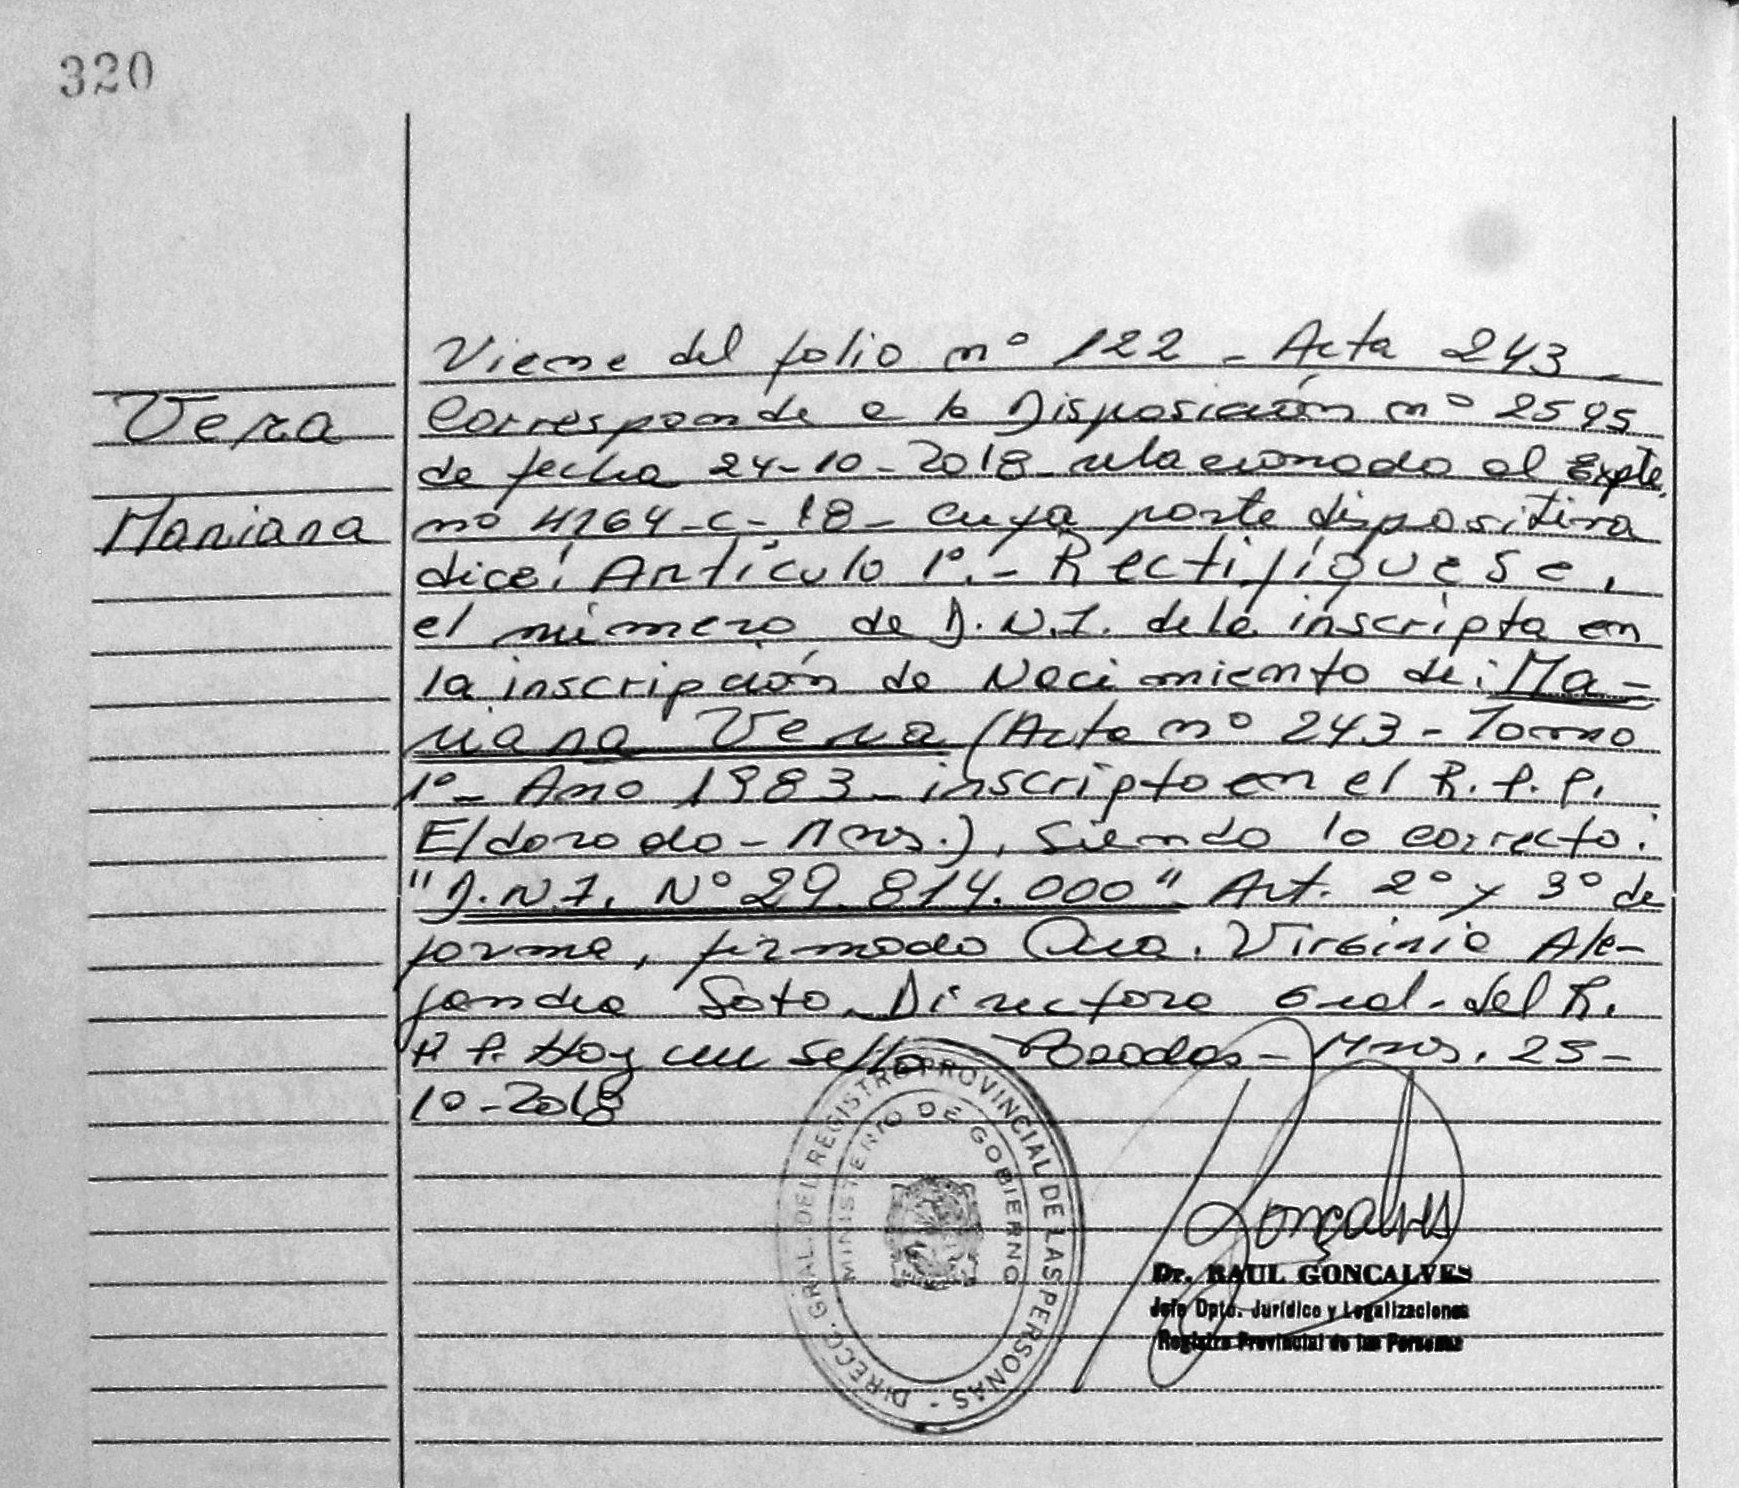 320
Viene del folio nº 122 - Acta 243 -
Vera
Corresponde a la Disposición nº 2595
de fecha 24-10-2018 relacionado al Expte.
Mariana
nº 4164-C-18- cuya parte dispositiva
dice: Artículo 1º.- Rectifíquese,
el número de D.N.I. de la inscripta en
la inscripción de Nacimiento de: Ma-
riana Vera (Acta nº 243 - Tomo
1º- Año 1983- inscripto en el R. P. P.
Eldorado - Mnes.), Siendo lo correcto:
"D.N.I. Nº 29.814.000" Art. 2º y 3º de
forma, firmado Virginia Ale-
jandra Soto. Directora Gral. del R.
P. P. Hay un sello Posadas - Mnes. 25-
10-2018
DIRECC. GRAL. DEL REGISTRO PROVINCIAL DE LAS PERSONAS -
MINISTERIO DE GOBIERNO
Gonçalves
Dr. RAUL GONCALVES
Jefe Dpto. Jurídico y Legalizaciones
Registro Provincial de las Personas